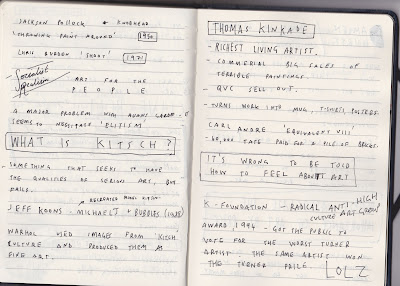 JACKSON POLLOCK
'THROWING PAINT AROUND' 1950
CHRIS BURDEN 'SHOOT' 1971
- Socialist Realism
ART FOR THE
PEOPLE
A MAJOR PROBLEM WITH AVANT GARDE - E
SEEMS TO NECESSITATE 'ELITISM
WHAT IS KITSCH?
- SOMETHING THAT SEEMS TO HAVE
THE QUALITIES OF SERIOUS ART, BUT
FAILS.
JEFF KOONS - MICHAEL J + BUBBLES (1988)
WARHOL USED IMAGES FROM KITCH
CULTURE AND PRODUCED THEM AS
FINE ART.
THOMAS KINKADE
- RICHEST LIVING ARTIST.
- COMMERCIAL BIG SALES OF
TERRIBLE PAINTINGS.
- QVC SELL OUT.
- TURNS WORK INTO MUG, T-SHIRTS, POSTERS.
CARL ANDRE 'EQUIVALENT VIII'
- 60,000 TATE PAID FOR A PILE OF BRICKS.
IT'S WRONG TO BE TOLD
HOW TO FEEL ABOUT ART
K - FOUNDATION - RADICAL ANTI-HIGH
CULTURE ART GROUP
AWARD 1994 - GOT THE PUBLIC TO
VOTE FOR THE WORST TURNER
ARTIST. THE SAME ARTIST WON
THE TURNER PRIZE. LOLZ